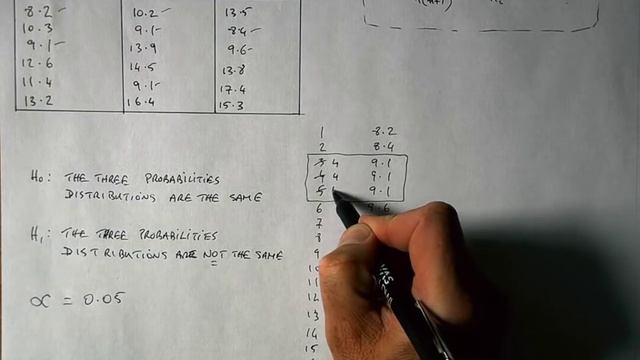 8.2 - 10.2 - 13.5
10.3 9.1 - 8.4 -
9.1 - 13.9 9.6 -
12.6 14.5 13.8
11.4 9.1 - 17.4
13.2 16.4 15.3
1 8.2
2 8.4
3 4 9.1
4 4 9.1
5 9.1
6 9.6
7
8
9
10
11
12
13
14
15
H₀: THE THREE PROBABILITIES
DISTRIBUTIONS ARE THE SAME
H₁: THE THREE PROBABILITIES
DISTRIBUTIONS ARE NOT THE SAME
α = 0.05